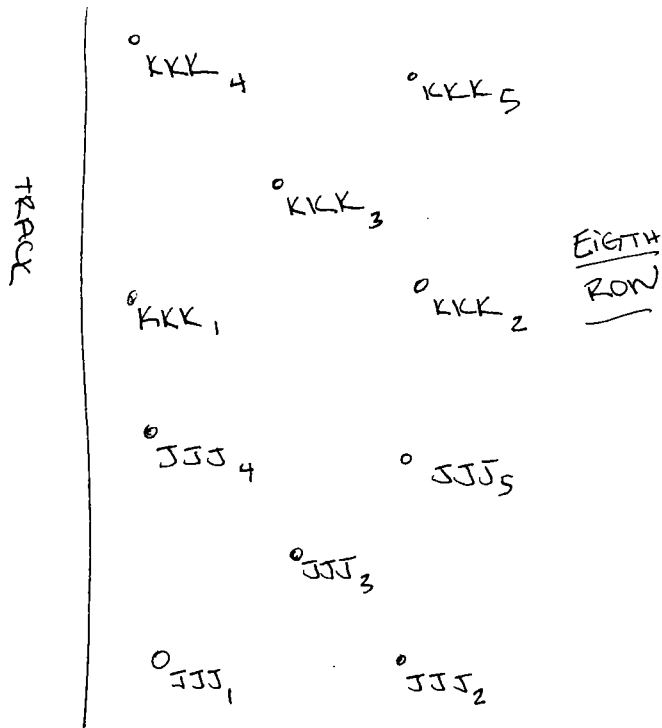 KKK 4
KKK 5
TRACK
KKK 3
EIGTH
ROW
KKK 1
KKK 2
JJJ 4
JJJ 5
JJJ 3
JJJ 1
JJJ 2